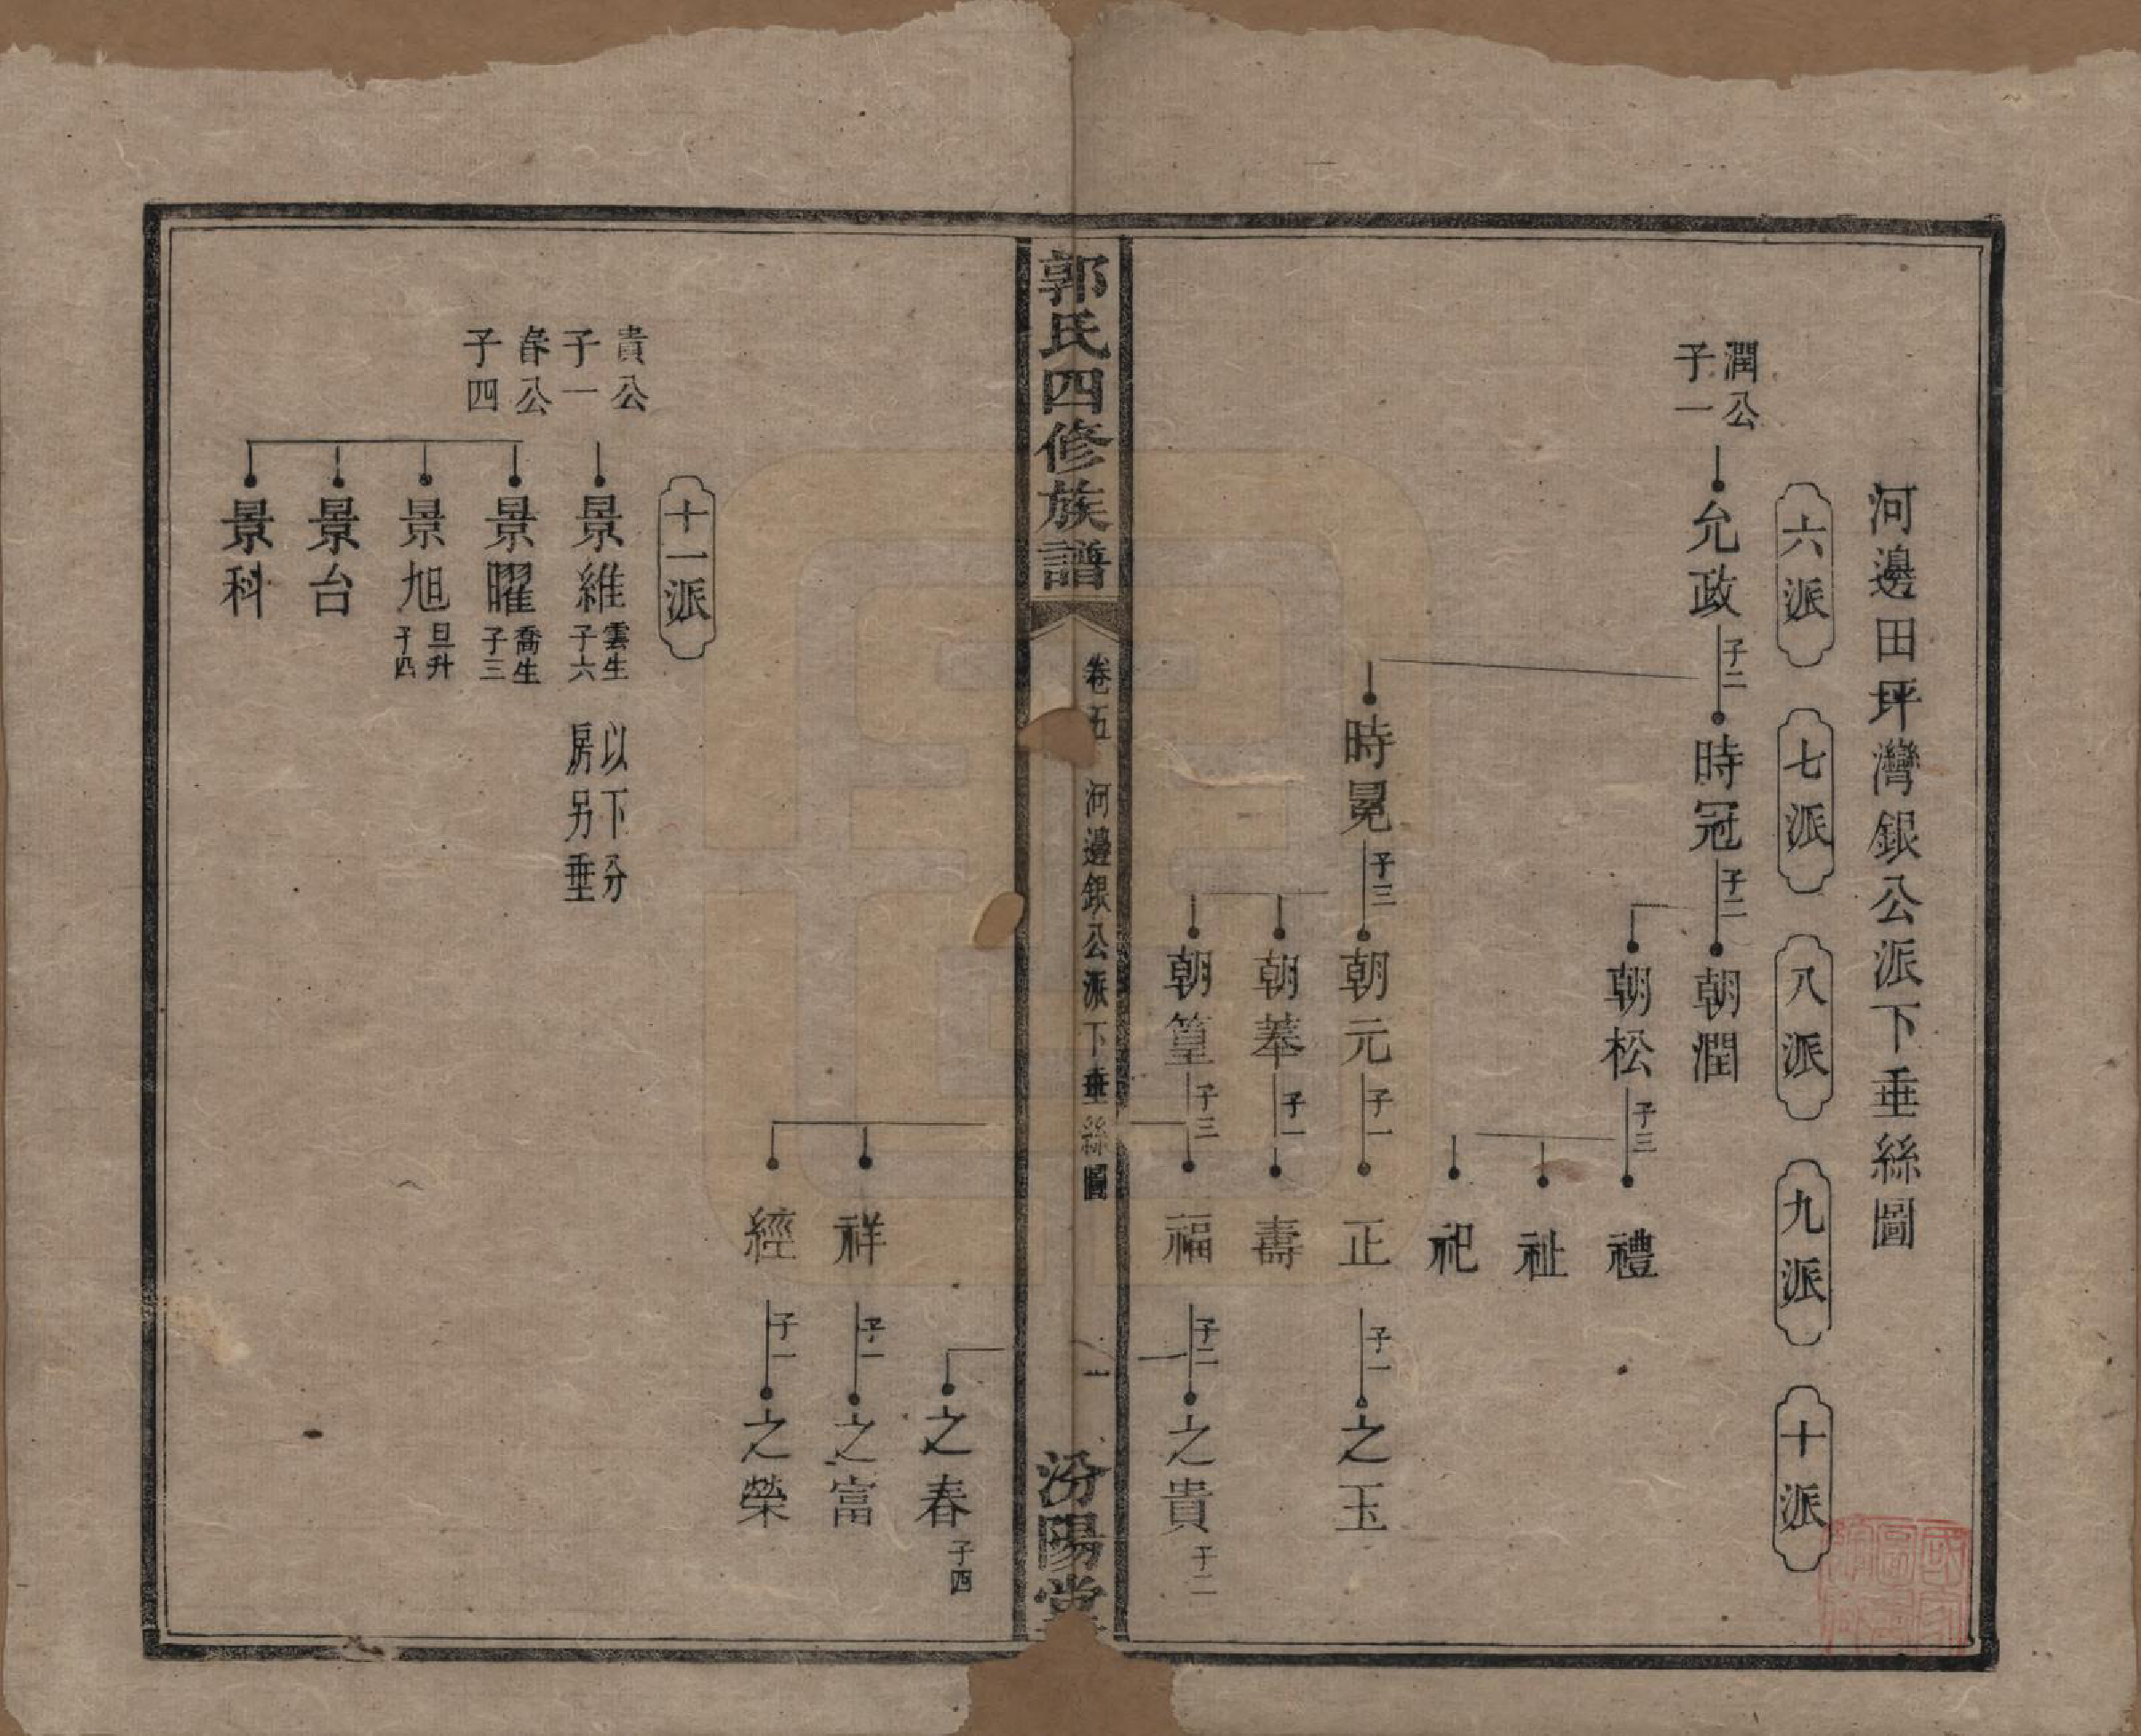 河邊田坪灣銀公派下垂絲圖
六派
七派
八派
九派
十派
潤公
子一
允政
子二
時冠
子二
朝潤
朝松
子三
禮
祉
祀
時冕
子三
朝元
子一
正
子一
之玉
朝奉
子一
壽
朝篁
子三
福
子二
之貴
子二
郭氏四修族譜
卷五
河邊銀公派下垂絲圖
一
汾陽堂
之春
子四
祥
子一
之富
經
子一
之榮
十一派
貴公
子一
景維
雲生
子六
以下分
房另垂
春公
子四
景曜
喬生
子三
景旭
旦升
子四
景台
景科